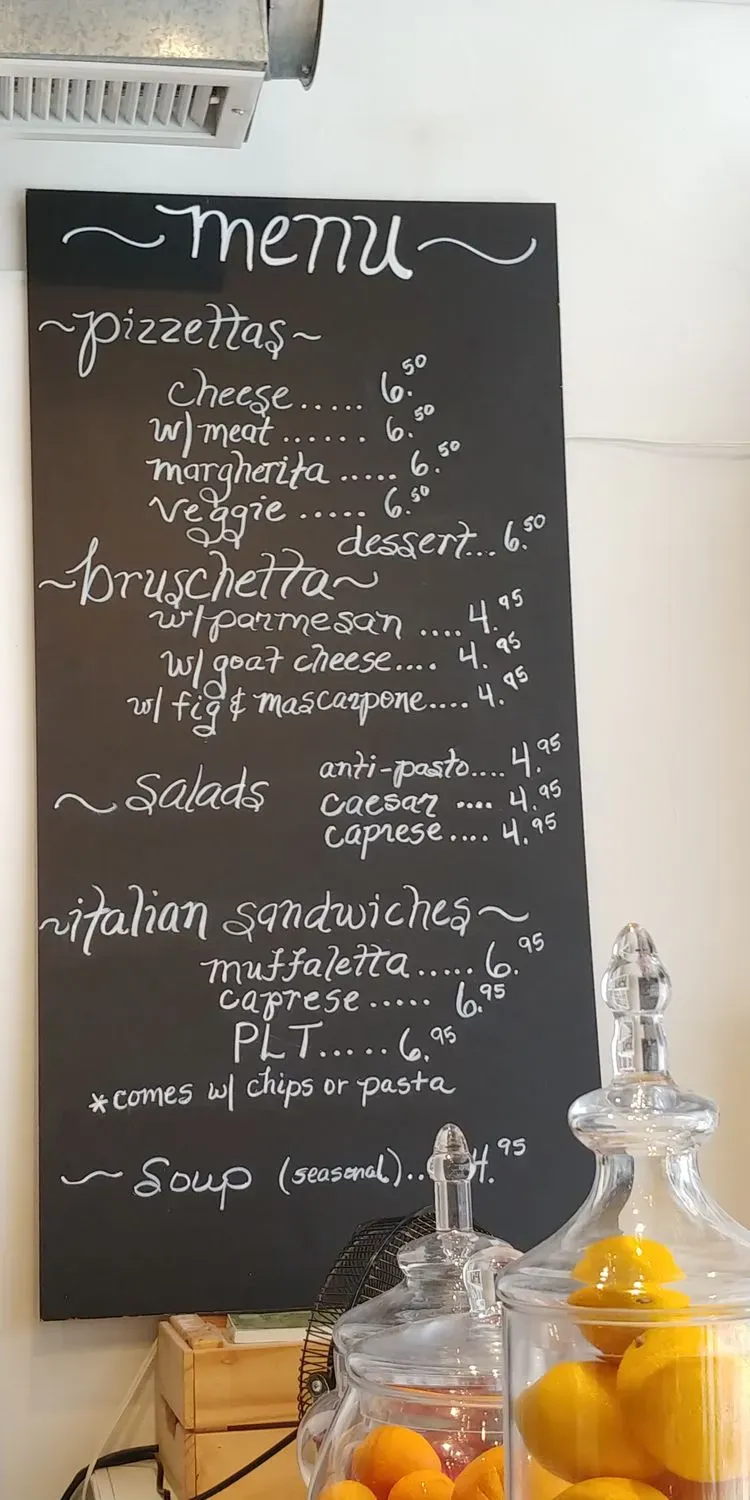 ~menu~
~pizzettas~
cheese..... 6.50
w/meat ....... 6.50
margherita ..... 6.50
veggie ..... 6.50
dessert... 6.50
~bruschetta~
w/parmesan .... 4.95
w/goat cheese.... 4.95
w/ fig & mascarpone.... 4.95
~salads
anti-pasto.... 4.95
caesar .... 4.95
caprese.... 4.95
~italian sandwiches~
muffaletta..... 6.95
caprese ..... 6.95
PLT..... 6.95
*comes w/ chips or pasta
~ Soup (seasonal)... 4.95